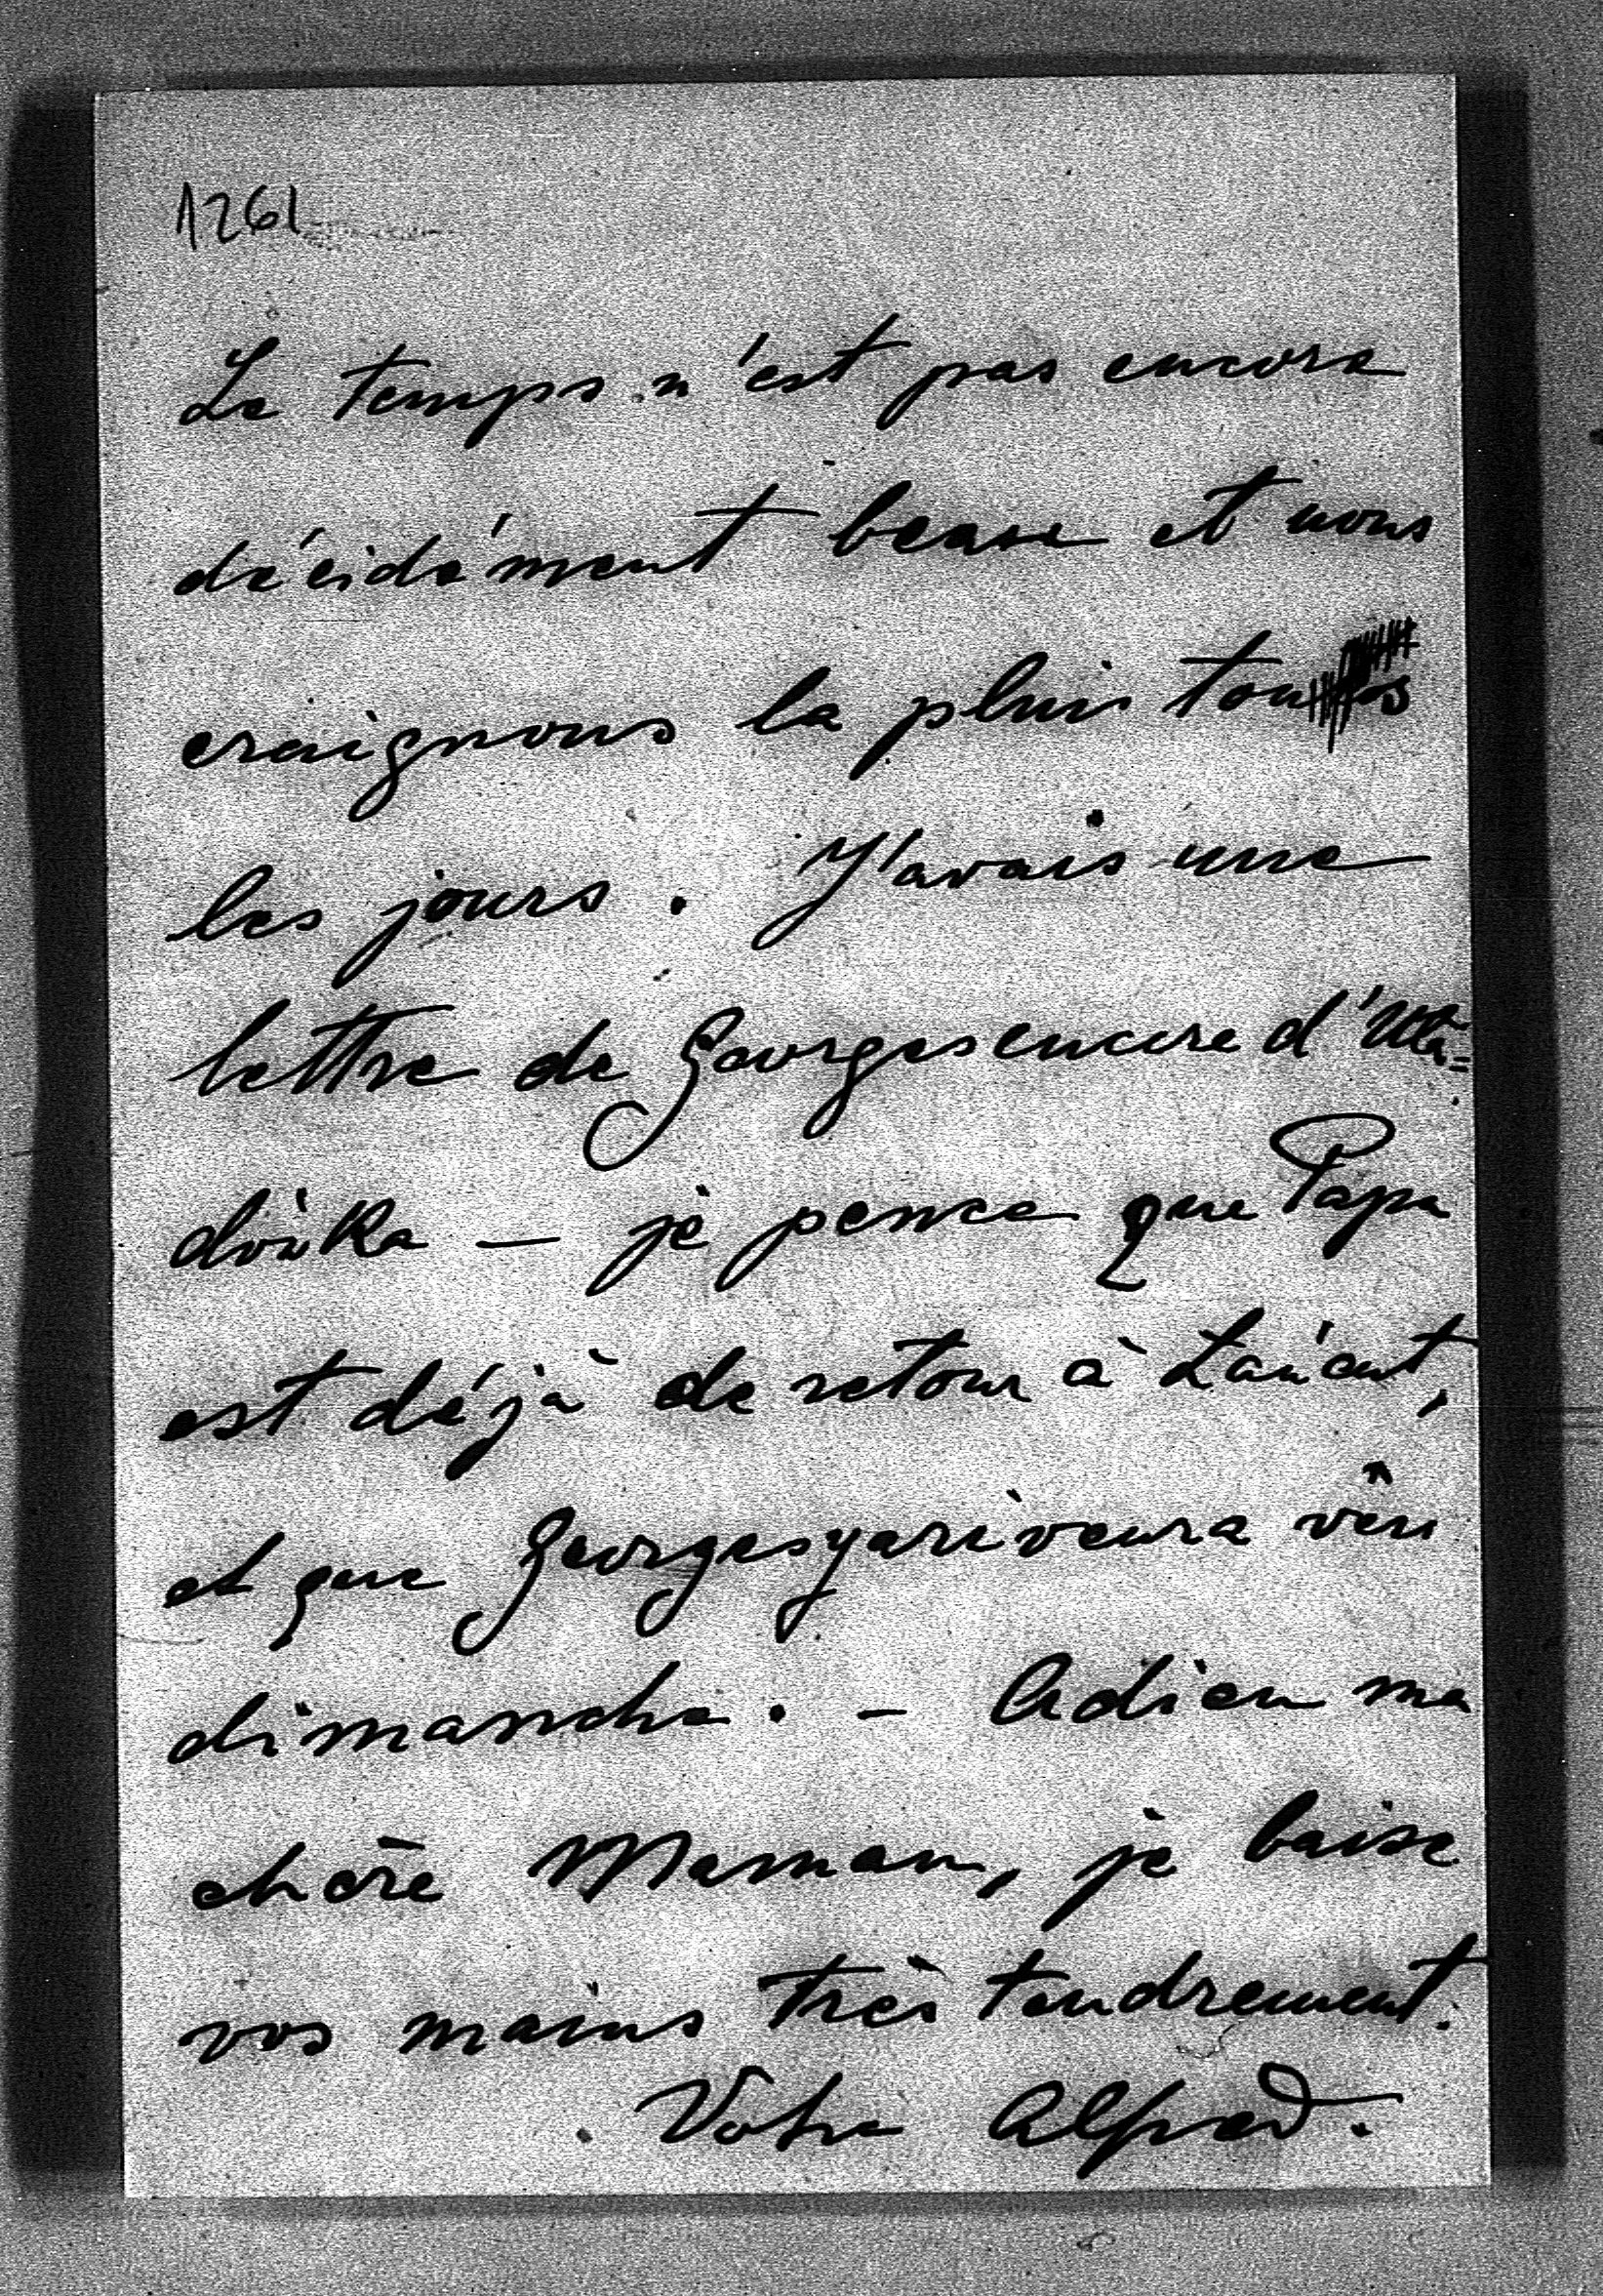 1261
Le temps n'est pas encore
décidément beau et nous
craignons la pluie tous
les jours. J'avais une
lettre de Georges encore d'Wla=
dówka — je pense que Papa
est déjà de retour à Łańcut,
et que Georges y arivera
dimanche. — Adieu ma
chère Maman, je baise
vos mains très tendrement.
Votre Alfred.